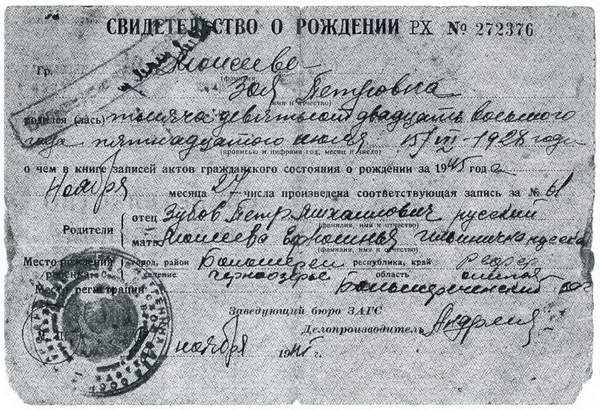 СВИДЕТЕЛЬСТВО О РОЖДЕНИИ РХ № 272376
Гр. Моисеева
(фамилия)
Зоя Петровна
(имя и отчество)
родился (лась) тысяча девятьсот двадцать восьмого
года пятнадцатого июля 15/VII-1928 года
(прописью и цифрами год, месяц и число)
о чем в книге записей актов гражданского состояния о рождении за 1945 год
Ноября месяца 27 числа произведена соответствующая запись за № 61
Родители
отец Зубов Петр Михайлович русский
(фамилия, имя и отчество)
мать Моисеева русская
(фамилия, имя и отчество)
Место рождения ребенка город, район республика, край РСФСР
селение Черноозерье область омская
Место регистрации Большереченский
Заведующий бюро ЗАГС
Делопроизводитель
ноября 1945 г.